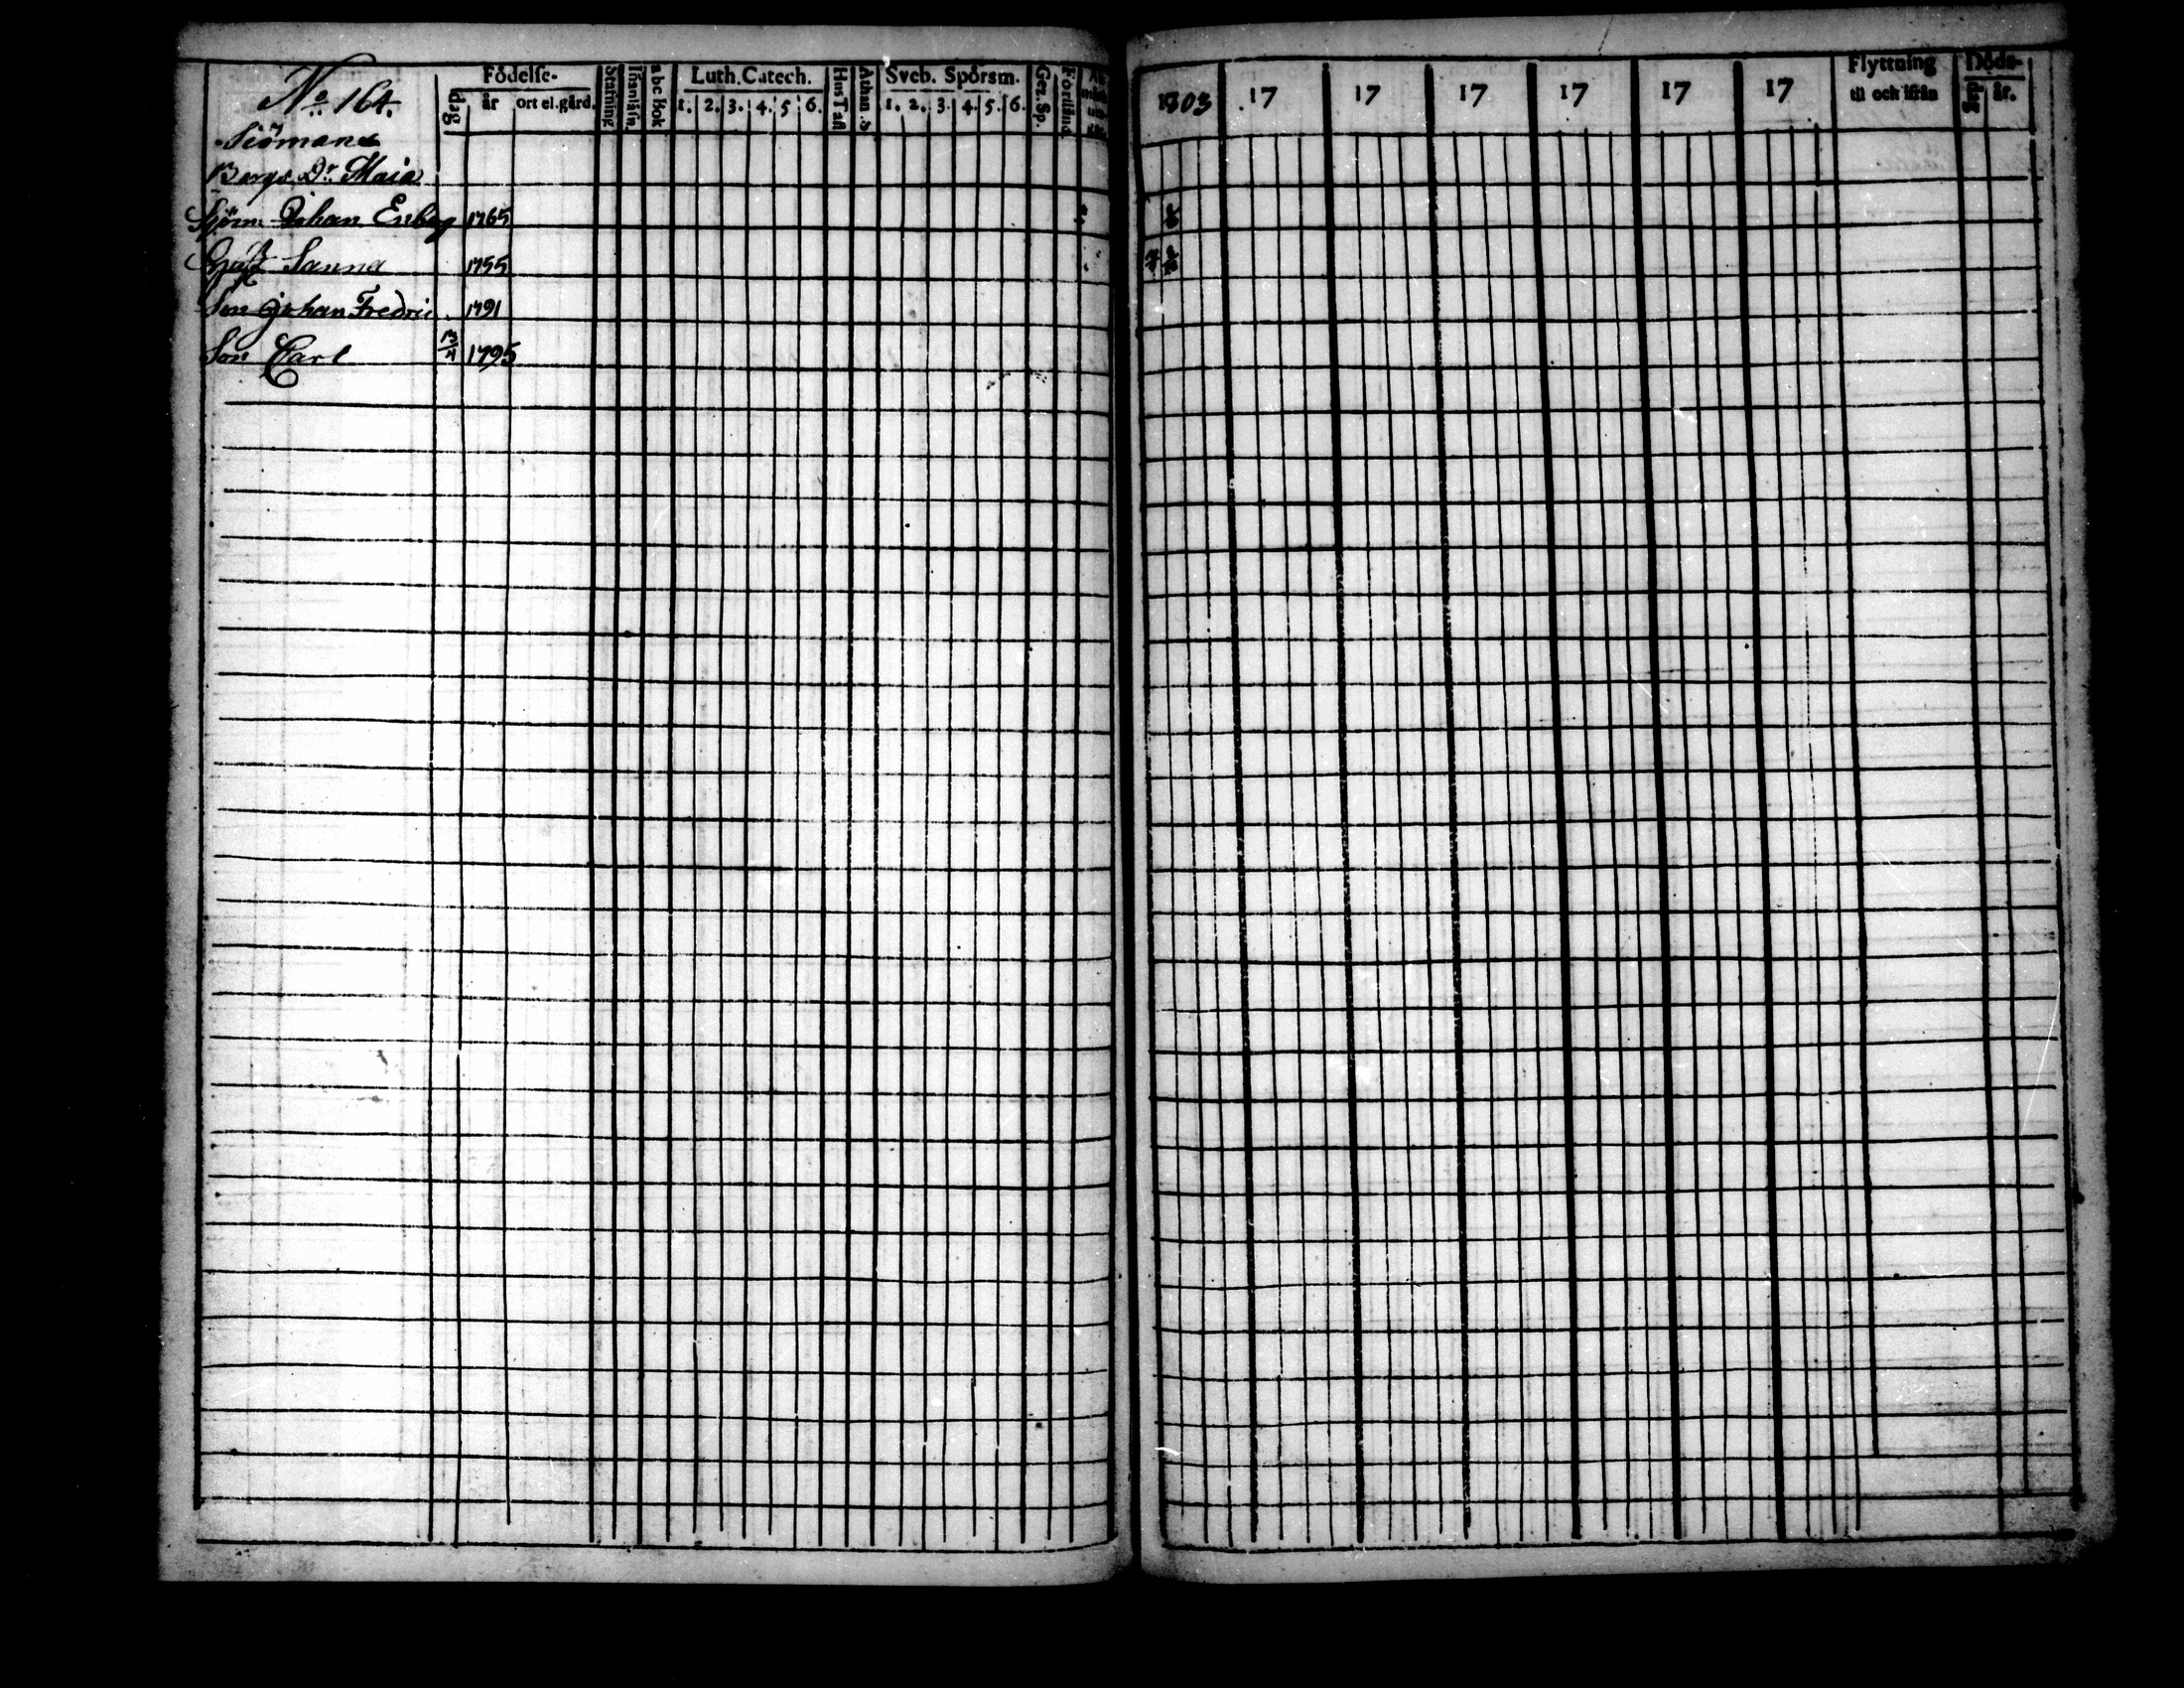 No 164.
Födelse-
dag
år
ort el. gård.
Stafning
Innanläsn.
abc Bok
Luth. Catech.
1. 2. 3. 4. 5 6.
Hus Tafl
Athan. S
Sveb. Spörsm.
1. 2. 3. 4. 5. 6.
Gez. Sp.
Förstånd
1803 17 17 17 17 17 17
Flyttning
til och ifrån
Döds-
dag
år.
Siömans
Bergs Dr. Maia
Sjöm. Johan Enberg 1765
Sanna 1755
Son Johan Fredric 1791
Son Carl 1795